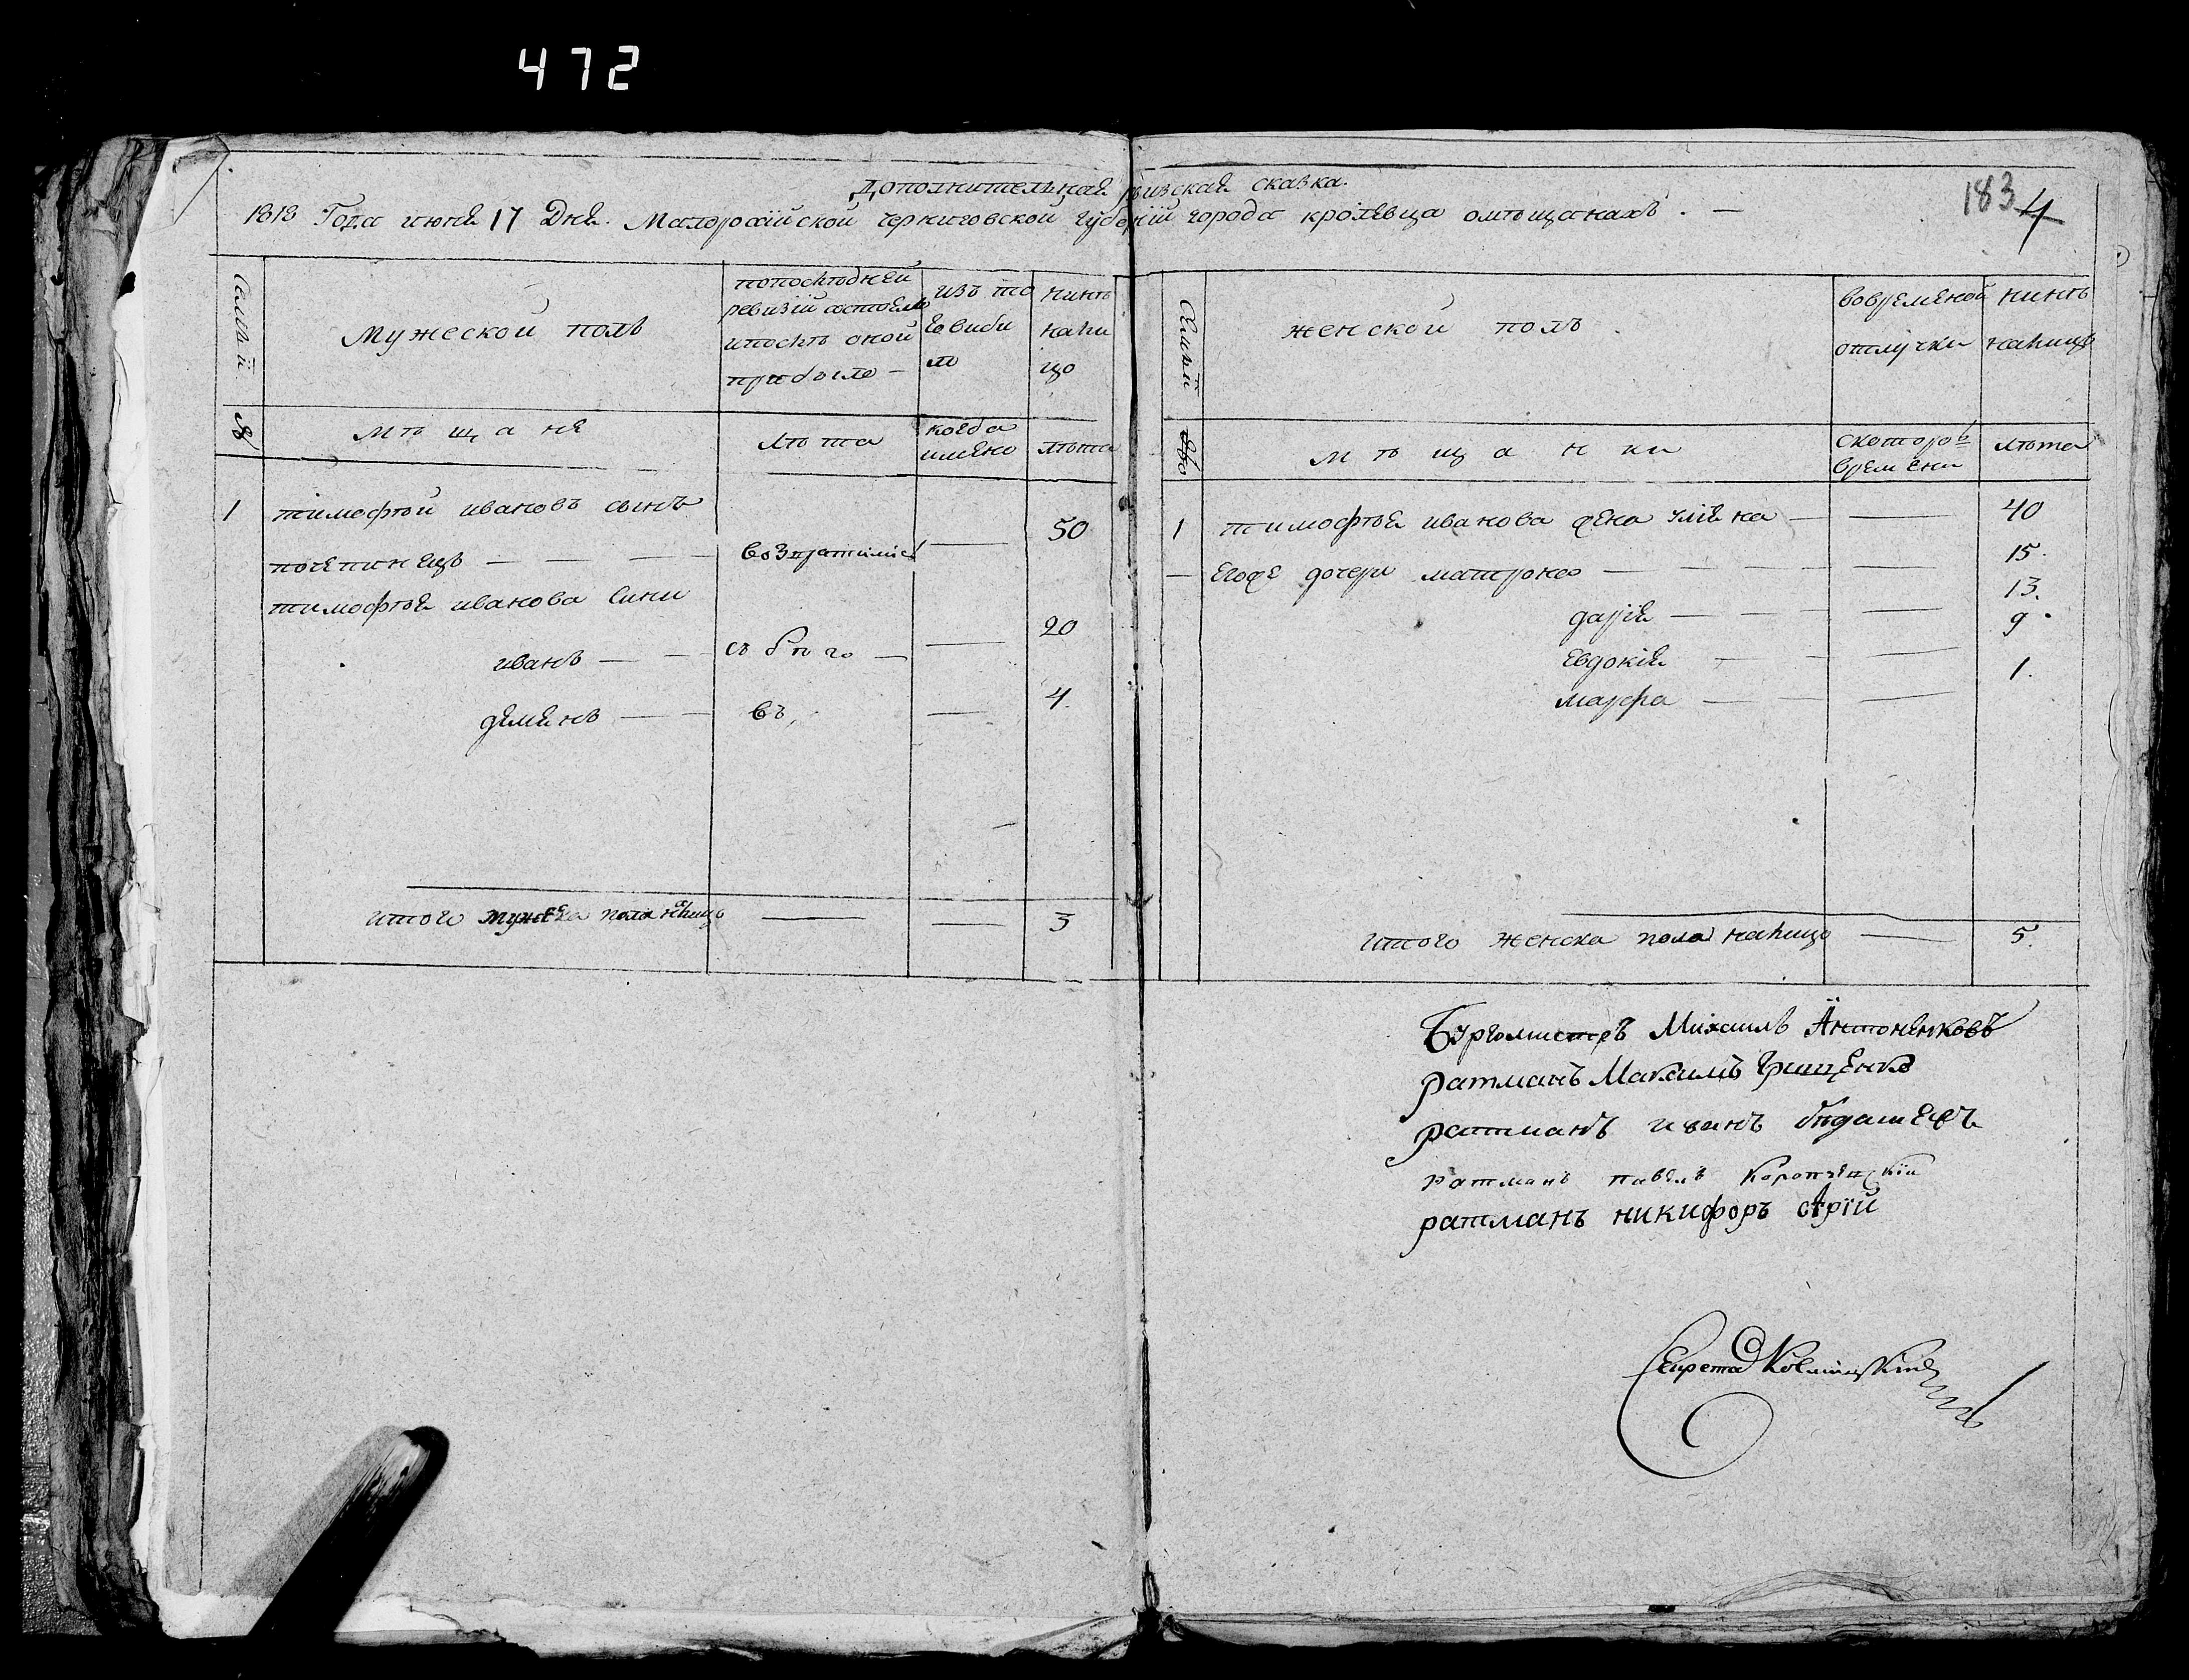 472
183 4
Дополнительная ривская сказка.
1818 Года июня 17 Дня. Малоросійской Черниговской Губерній города кролевца омѣщанахъ. —
Семьи
Мужеской полъ
попослѣдней
ревизій состоело
ипослѣ оной
прибыло —
изъ то
го виби
ло
нинѣ
нали
цо
№
мѣщане
лѣта
когда
имено
лѣта
1 тимофѣй ивановъ сынъ 50
почепинецъ — — — возвратился —
тимофѣя иванова сини
иванъ — — съ бѣго — — 20
демянъ — — въ, — 4.
итого мужска пола налицо — — 3
Семьи
женской полъ
вовременой
отлучки
нинѣ
налицо
мѣщанки
скоторо
времени
лѣта
1 тимофѣя иванова жена улiяна — — 40
— Егоже дочери матрона — — — 15.
дарiя — — — 13.
Евдокiя — — — 9.
марфа — — — 1.
итого женска пола налицо — 5.
Бургомистръ Михаилъ Антоненковъ
ратманъ Максимъ Грищенко
ратманъ иванъ
ратманъ павелъ
ратманъ никифоръ
Секрета